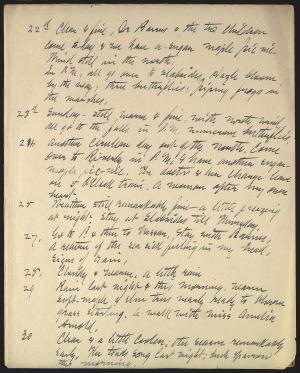 22d Clear & fine, Dr Barrus & the two children
come to-day, & we have a sugar maple pic nic.
Wind still in the north.
In P.M. all go over to Slabsides, Hazle bloom
by the way; three butterflies; piping frogs in
the marshes.
23d Sunday - still, warm & fine, with north wind,
all go to the falls in P.M. numerous butterflies,
24 Another cerulean day out of the north. Come
over to in P.M. & have another sugar-
maple pic-nic. The doctor & her charge leave
on 5 o'clock train. A woman after my own
heart.
25 Weather still remarkably fine - a little freezing
at night. Stay at Slabsides till Thursday,
27, Go to P. & then to stay with
a return of the sea sick feeling in my head,
signs of rain,
28. Cloudy & warm, a little rain
29 Rain last night & this morning, warm
soft maple & elm trees nearly ready to bloom
grass starting. A walk with Miss Amelia
Arnold,
30 Clear & a little cooler; the season remarkably
early, The toads song last night; bush sparrow
this morning.